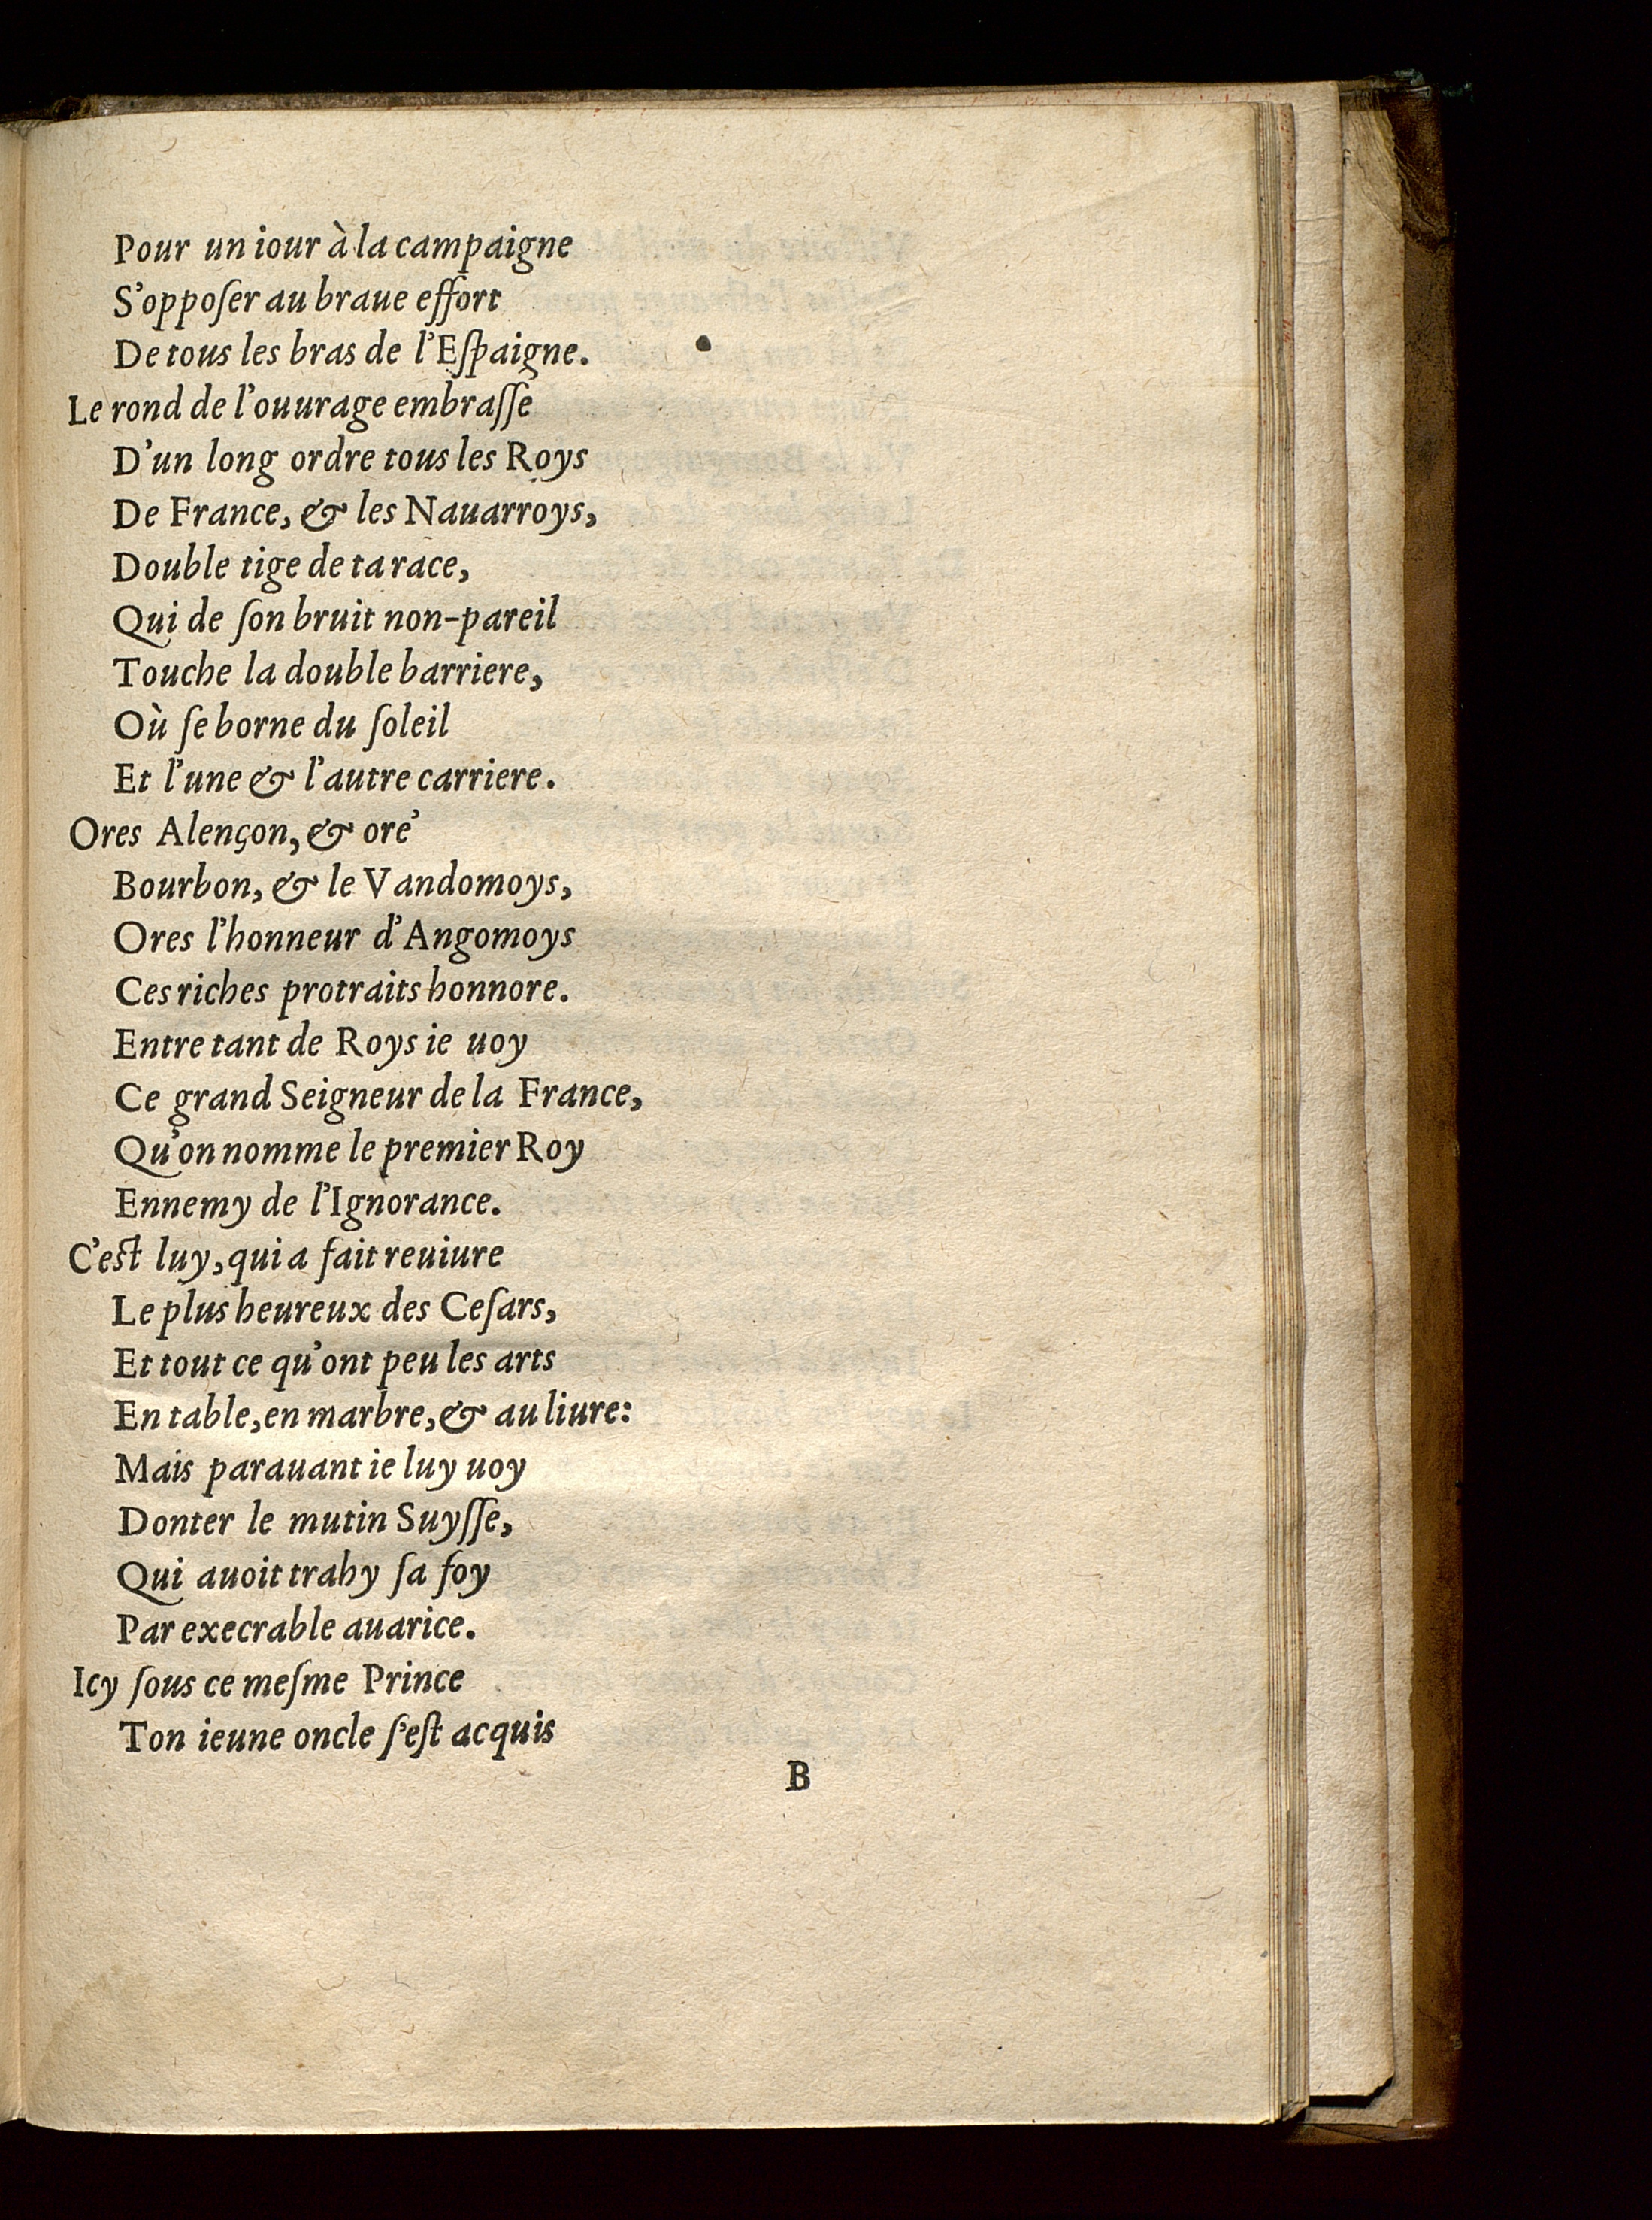 Pour un iour à la campaigne
S'opposer au braue effort
De tous les bras de l'Espaigne.
Le rond de l'ouurage embrasse
D'un long ordre tous les Roys
De France, & les Nauarroys,
Double tige de ta race,
Qui de son bruit non-pareil
Touche la double barriere,
Où se borne du soleil
Et l'une & l'autre carriere.
Ores Alençon, & ore'
Bourbon, & le Vandomoys,
Ores l'honneur d'Angomoys
Ces riches protraits honnore.
Entre tant de Roys ie uoy
Ce grand Seigneur de la France,
Qu'on nomme le premier Roy
Ennemy de l'Ignorance.
C'est luy, qui a fait reuiure
Le plus heureux des Cesars,
Et tout ce qu'ont peu les arts
En table, en marbre, & au liure:
Mais parauant ie luy uoy
Donter le mutin Suysse,
Qui auoit trahy sa foy
Par execrable auarice.
Icy sous ce mesme Prince
Ton ieune oncle s'est acquis
B